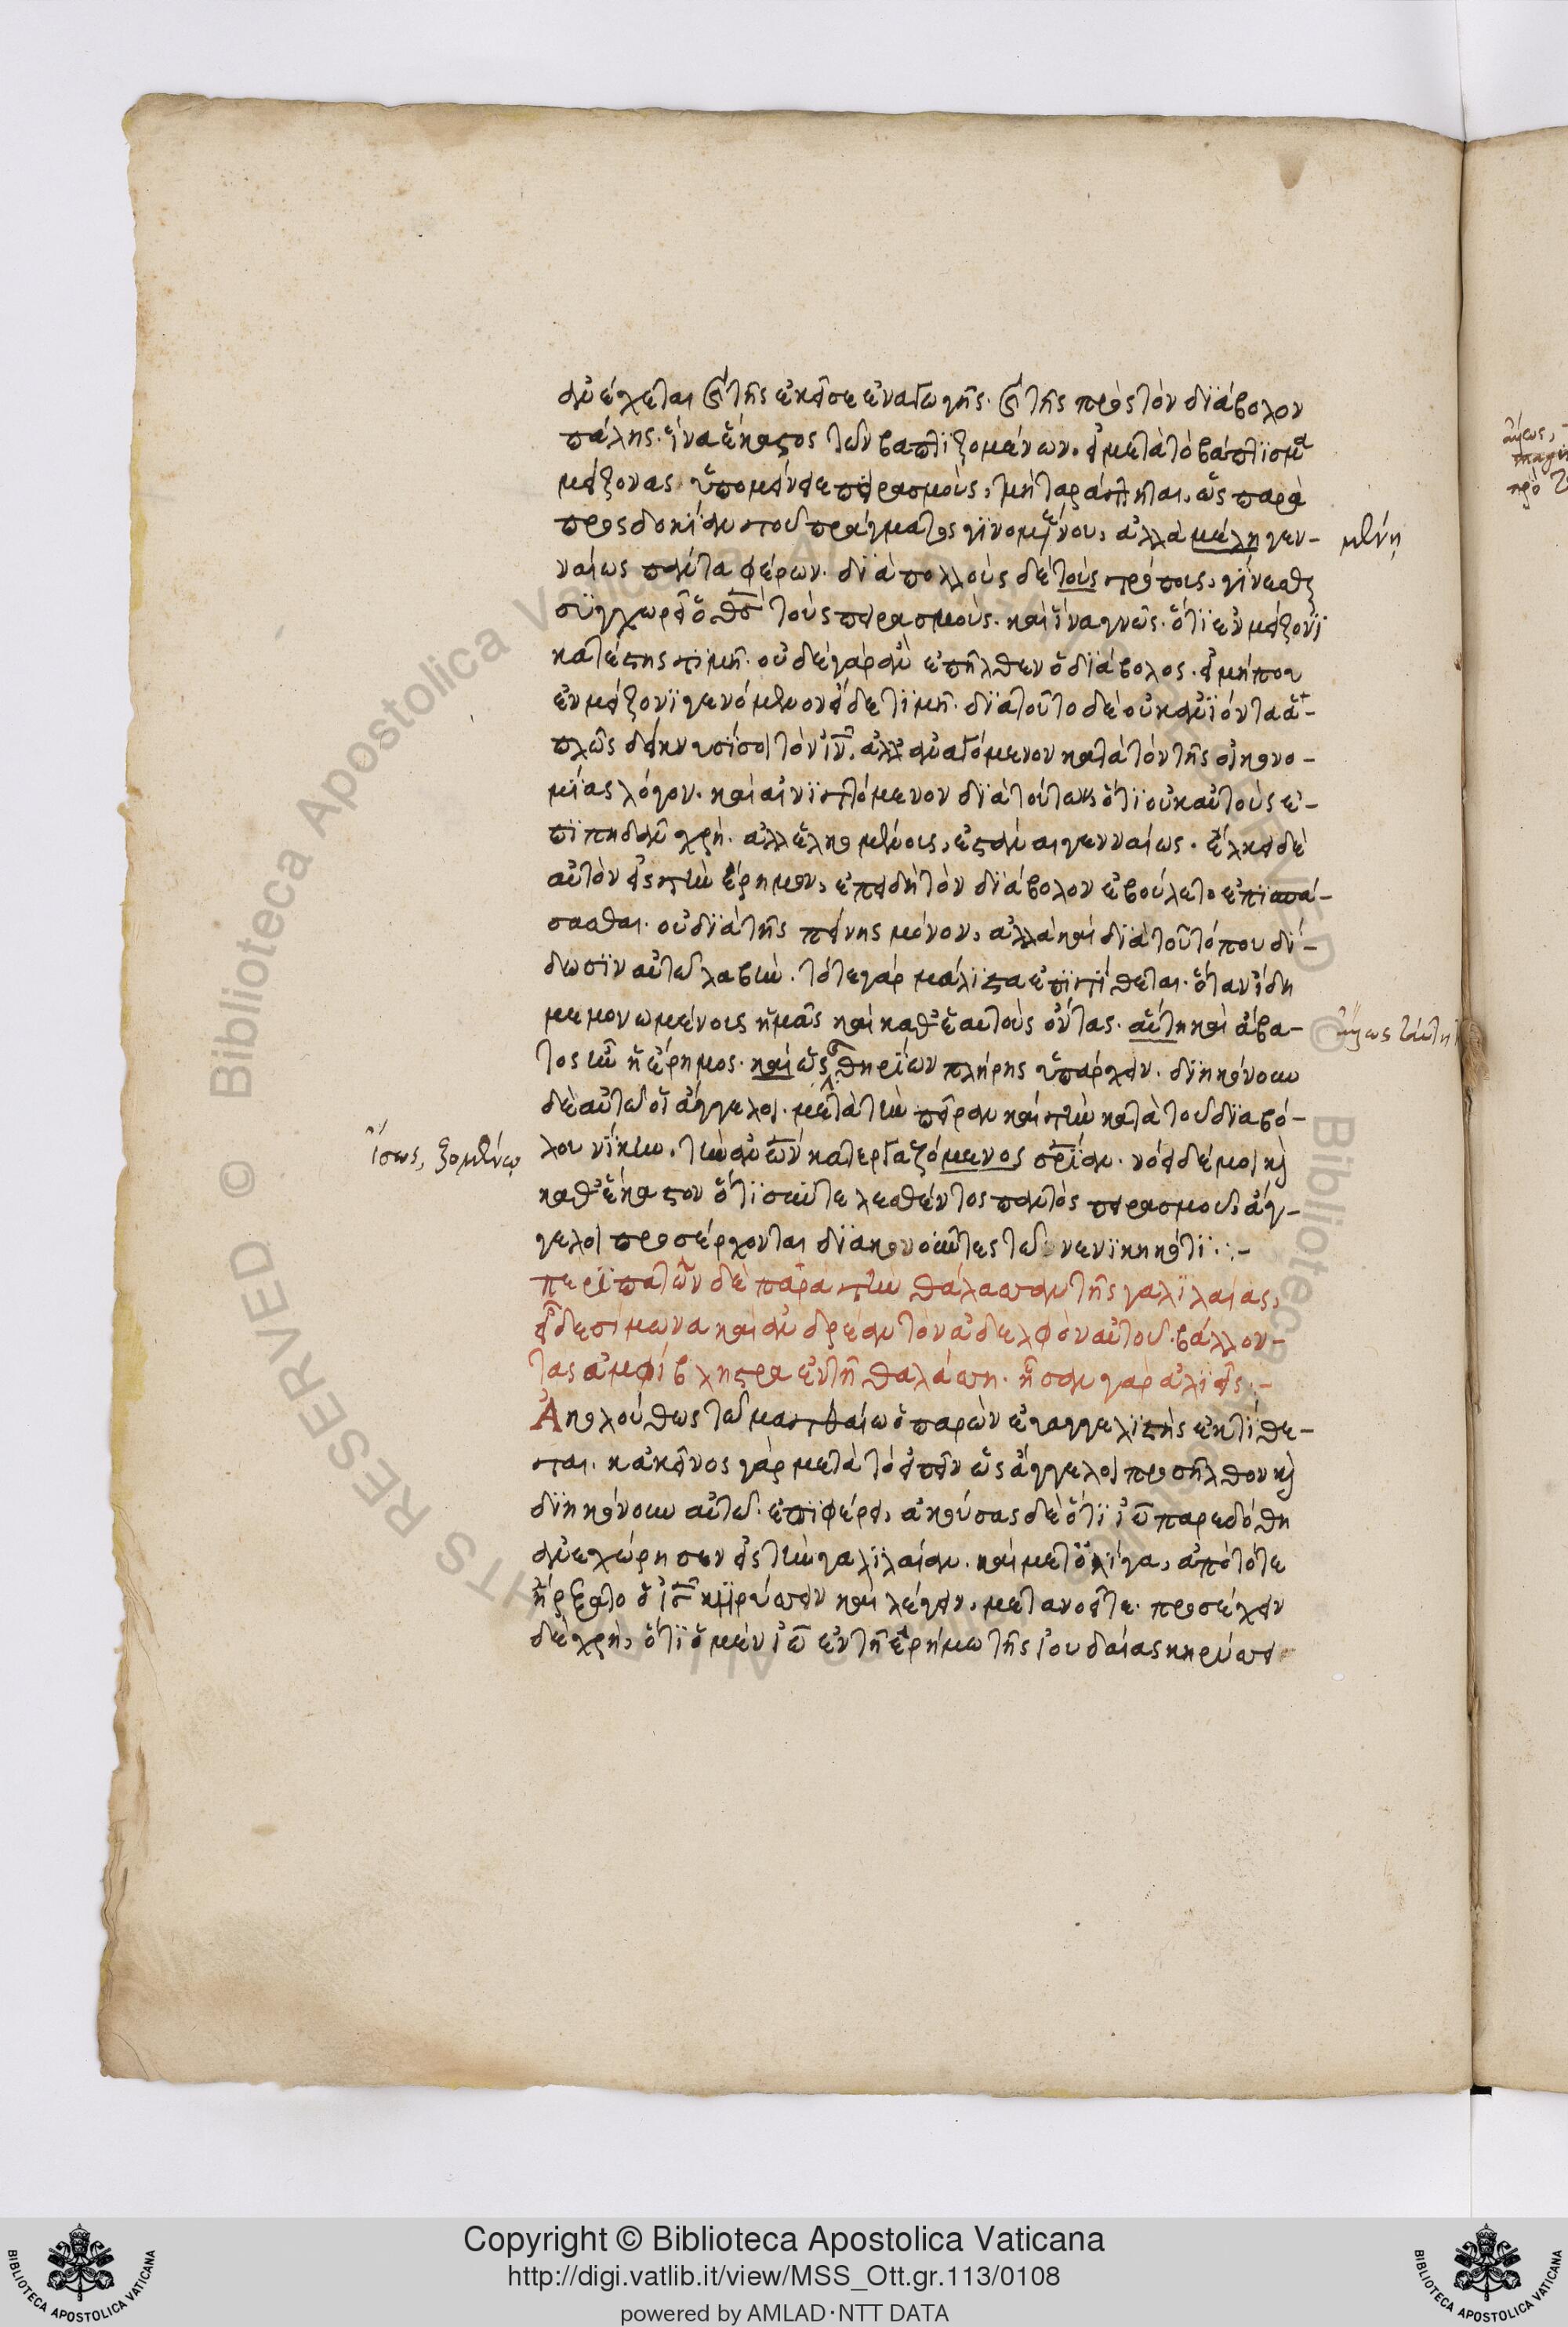 ἀνέχεται καὶ τῆς ἐκεῖσε ἐναγωγῆς· καὶ τῆς πρὸς τὸν διάβολον
πάλης· ἵνα ἕκαστος τῶν βαπτιζομένων, εἰ μετὰ τὸ βάπτισμα
μείζονας ὑπομείνειε πειρασμούς, μὴ ταράττηται, ὡς παρὰ
προσδοκίαν τοῦ πράγματος γινομένου, ἀλλὰ μέλη γεν-
ναίως πάντα φέρων· διὰ πολλοὺς δὲ τοὺς τρόπους, γίνεσθαι
συγχωρεῖ ὁ θς τοὺς πειρασμούς· καὶ ἵνα γνῷς· ὅτι ἐν μείζονι
κατέστης τιμῇ· οὐδὲ γὰρ ἂν ἐπῆλθεν ὁ διάβολος· εἰ μή που
ἐν μείζονι γενόμενον εἶδε τιμῇ· διὰ τοῦτο δὲ οὐκ ἀνιόντα ἁ-
πλῶς δείκνυσί σοι τὸν ιν, ἀλλ' ἀναγόμενον κατὰ τὸν τῆς οἰκονο-
μίας λόγον· καὶ αἰνιττόμενον διὰ τούτων ὅτι οὐκ αὐτοὺς ἐ-
πιπηδᾶν χρή· ἀλλ' ἑλκομένους, ἑστάναι γενναίως· ἕλκει δὲ
αὐτὸν εἰς τὴν ἔρημον, ἐπειδὴ τὸν διάβολον ἐβούλετο ἐπισπά-
σασθαι· οὐ διὰ τῆς πείνης μόνον, ἀλλὰ καὶ διὰ τοῦ τόπου δί-
δωσιν αὐτῷ λαβήν· τότε γὰρ μάλιστα ἐπιτίθεται· ὅταν ἴδῃ
μεμονωμένους ἡμᾶς καὶ καθ' ἑαυτοὺς ὄντας· αὕτη καὶ ἄβα-
τος ἦν ἡ ἔρημος· καὶ ὡς θηρίων πλήρης ὑπάρχειν· διηκόνουν
δὲ αὐτῷ οἱ ἄγγελοι· μετὰ τὴν πεῖραν καὶ τὴν κατὰ τοῦ διαβό-
λου νίκην· τὴν ανων κατεργαζόμενος σριαν· νόει δέ μοι καὶ
καθ' ἕκαστον ὅτι συντελεσθέντος παντὸς πειρασμοῦ, ἄγ-
γελοι προσέρχονται διακονοῦντες τῷ νενικηκότι:-
περιπατῶν δὲ παρὰ τὴν θάλασσαν τῆς γαλιλαίας,
εἶδε σίμωνα καὶ ἀνδρέαν τὸν ἀδελφὸν αὐτοῦ· βάλλον-
τας ἀμφίβληστρα ἐν τῇ θαλάσσῃ· ἦσαν γὰρ ἁλιεῖς:-
Ἀκολούθως τῷ ματθαίῳ ὁ παρὼν εὐαγγελιστὴς ἐκτίθε-
ται· κἀκεῖνος γὰρ μετὰ τὸ εἰπεῖν ὡς ἄγγελοι προσῆλθον καὶ
διηκόνουν αὐτῷ· ἐπιφέρει, ἀκούσας δὲ ὅτι ἰω παρεδόθη
ἀνεχώρησεν εἰς τὴν γαλιλαίαν· καὶ μετ' ὀλίγα, ἀπὸ τότε
ἤρξατο ὁ ις κηρύσσειν καὶ λέγειν, μετανοεῖτε· προσέχειν
δὲ χρή, ὅτι ὁ μὲν ἰω ἐν τῇ ἐρήμῳ τῆς ἰουδαίας κηρύσσει
μένῃ
ἴσως ταύτῃ
ἴσως, ζομένῳ
Copyright © Biblioteca Apostolica Vaticana
http://digi.vatlib.it/view/MSS_Ott.gr.113/0108
powered by AMLAD·NTT DATA
BIBLIOTECA APOSTOLICA VATICANA
BIBLIOTECA APOSTOLICA VATICANA